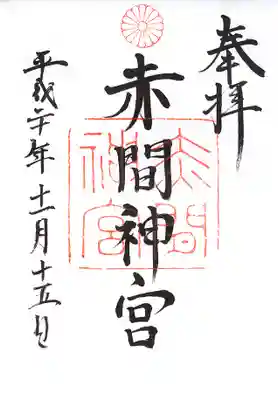 奉拝
赤間神宮
平成二十年十一月十五日
赤間
神宮